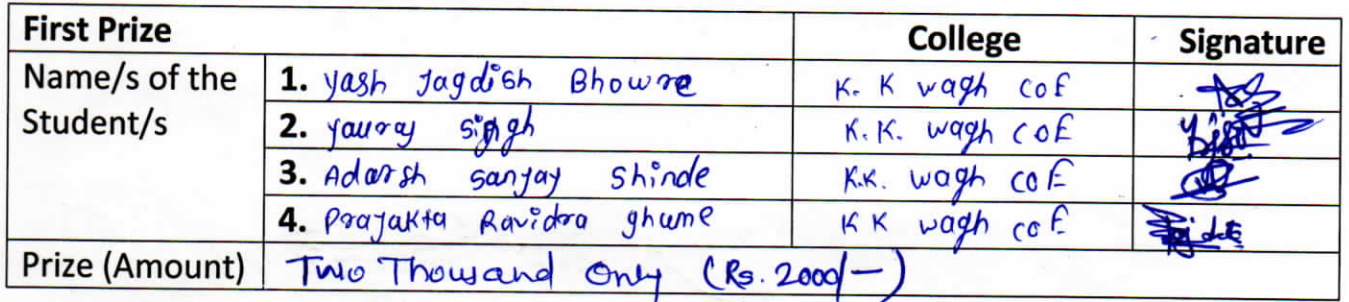 First Prize College Signature
Name/s of the Student/s 1. Yash Jagdish Bhowre K. K wagh COE
2. singh K.K. wagh COE
3. Adarsh sanjay shinde K.K. wagh COE
4. Prajakta Ravidra ghume K K wagh COE
Prize (Amount) Two Thousand Only (Rs. 2000/-)